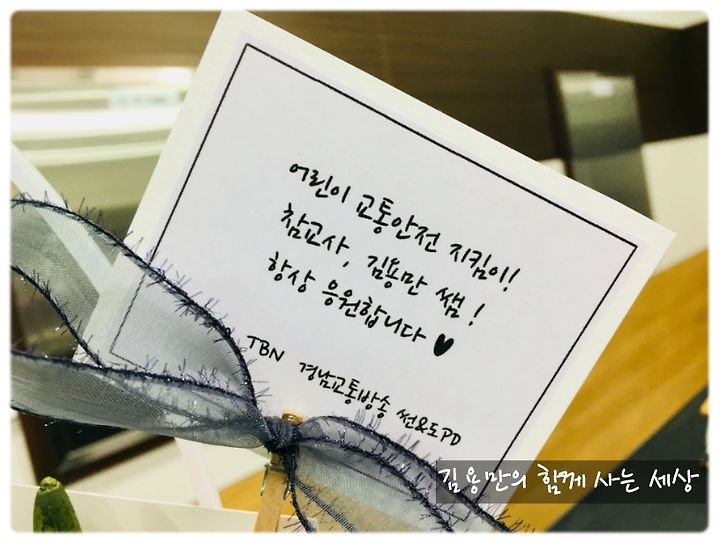 어린이 교통안전 지킴이!
참교사, 김용만 쌤!
항상 응원합니다 ♥
TBN 경남교통방송 썬&도PD
김용만의 함께 사는 세상